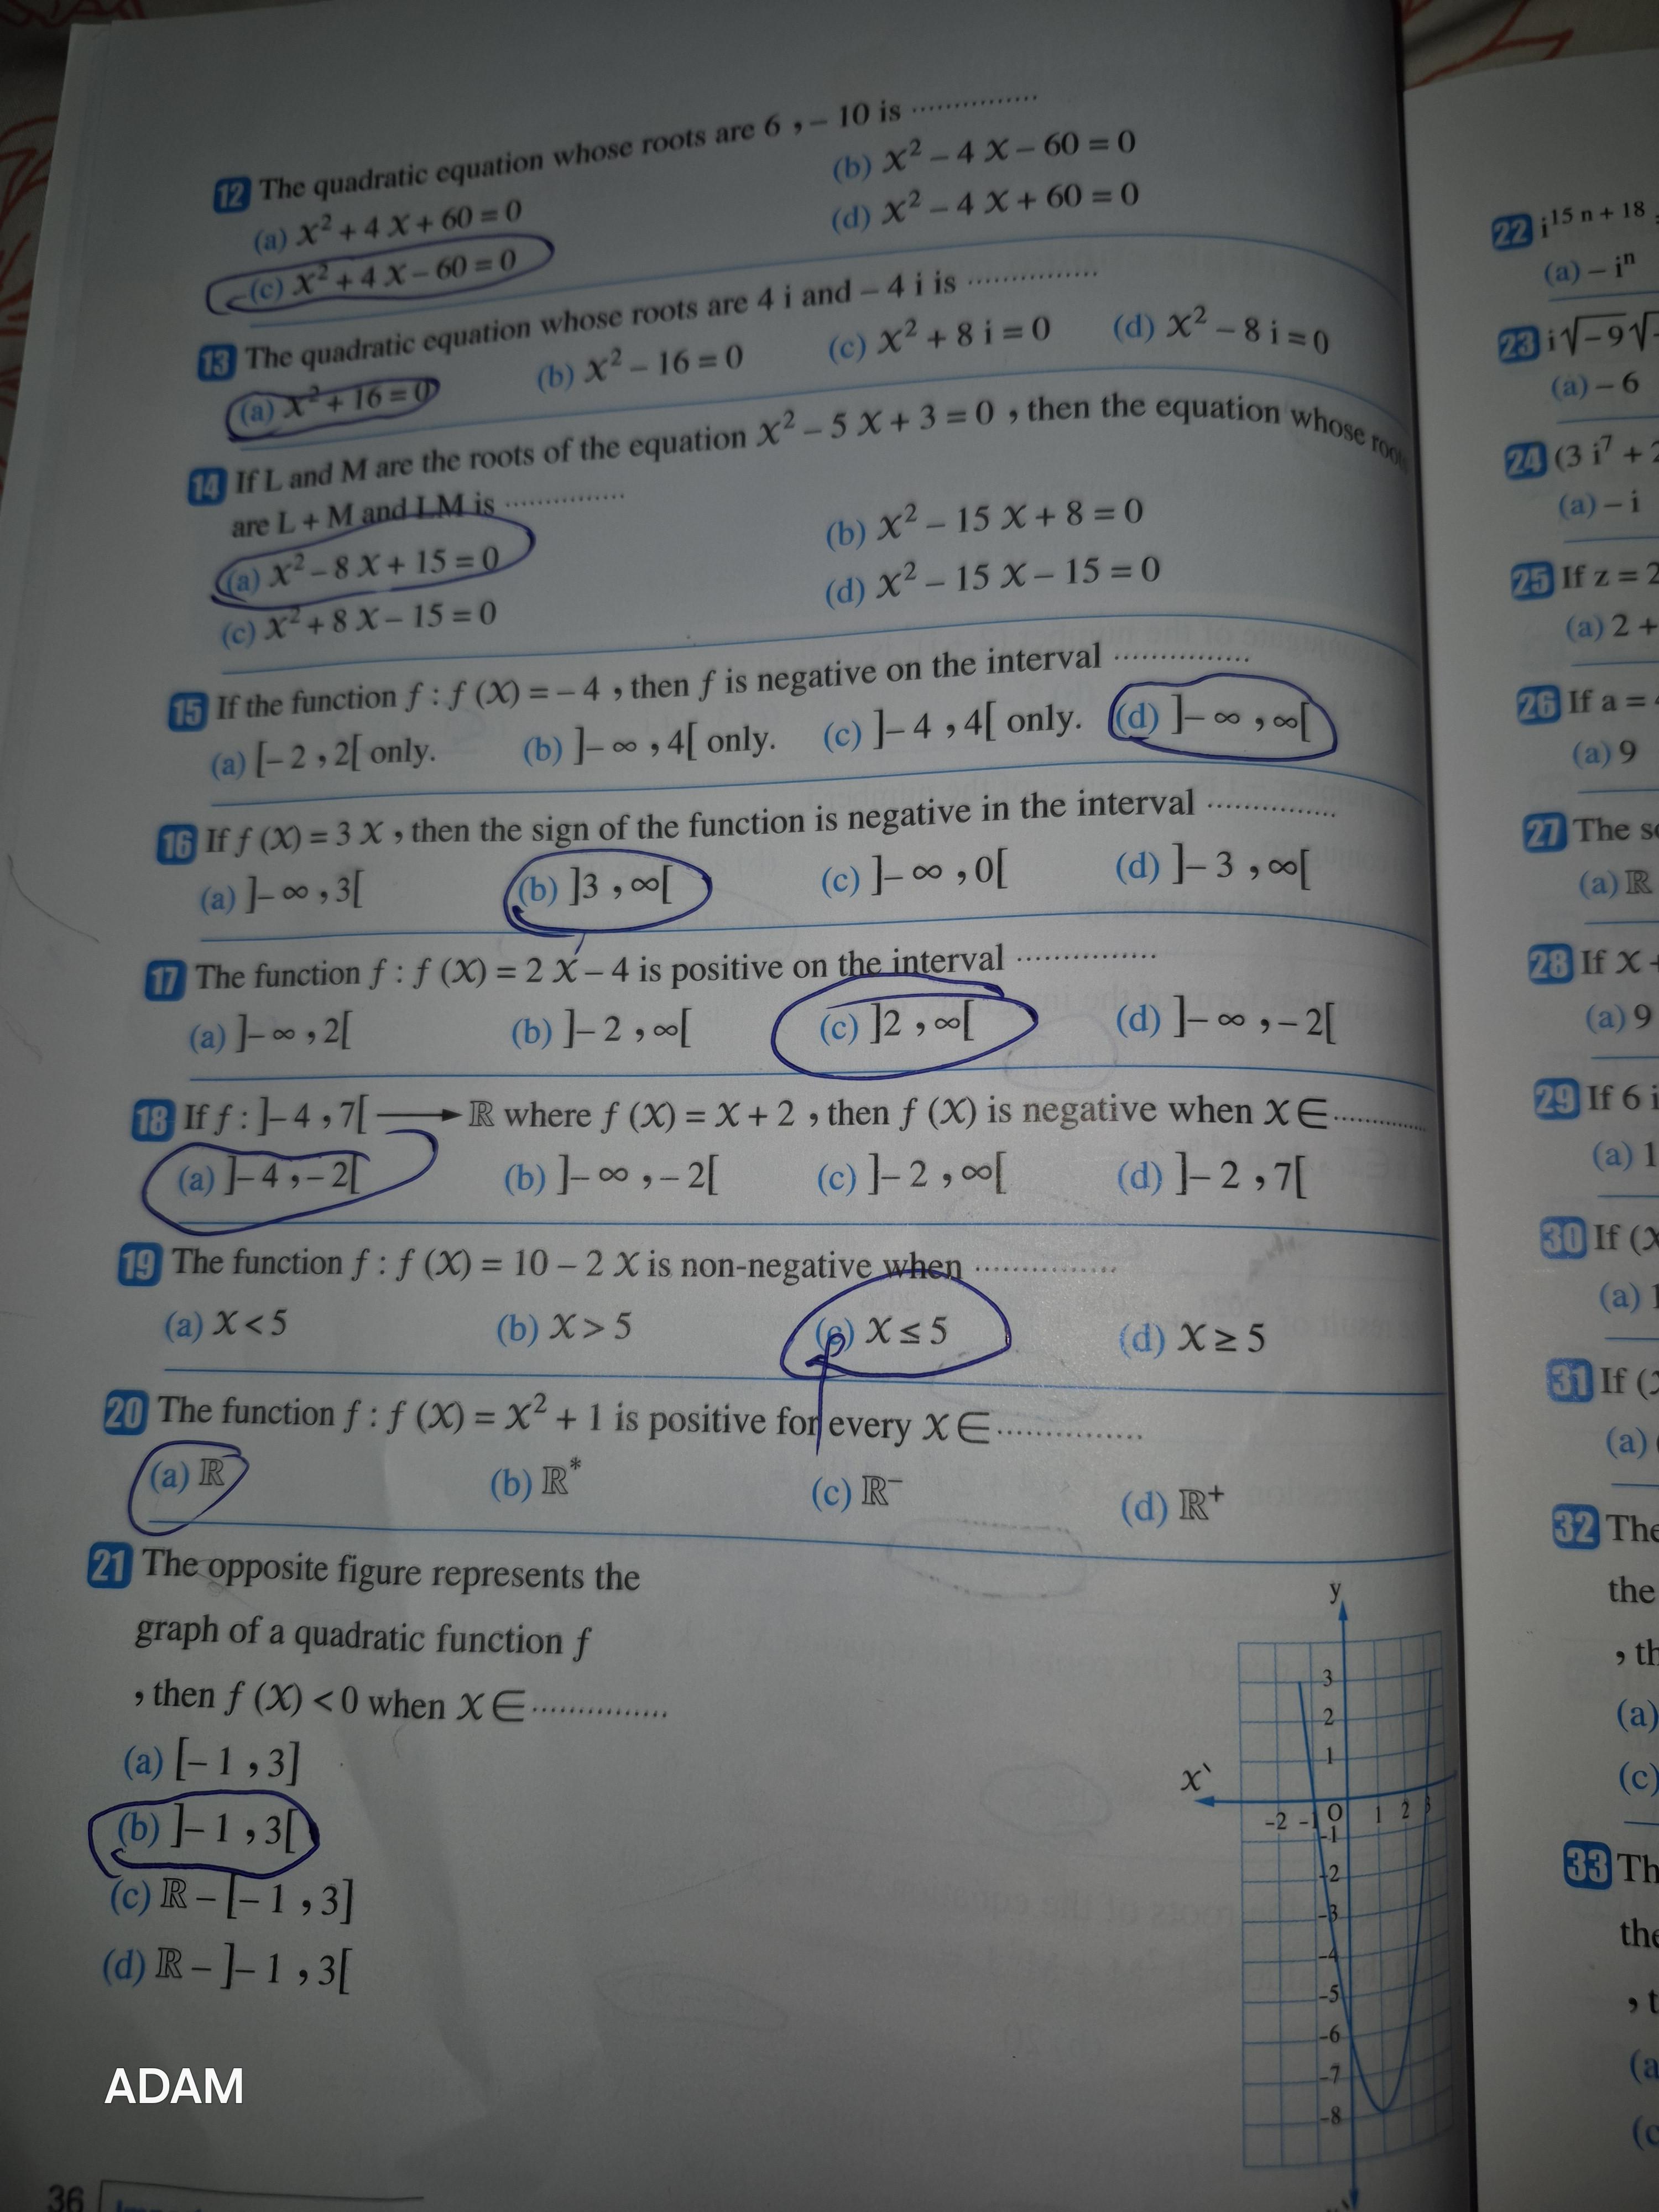 12 The quadratic equation whose roots are 6 , – 10 is ...............
(a) x² + 4 x + 60 = 0 (b) x² – 4 x – 60 = 0
(c) x² + 4 x – 60 = 0 (d) x² – 4 x + 60 = 0
13 The quadratic equation whose roots are 4 i and – 4 i is ...............
(a) x² + 16 = 0 (b) x² – 16 = 0 (c) x² + 8 i = 0 (d) x² – 8 i = 0
14 If L and M are the roots of the equation x² – 5 x + 3 = 0 , then the equation whose
are L + M and LM is ...............
(a) x² – 8 x + 15 = 0 (b) x² – 15 x + 8 = 0
(c) x² + 8 x – 15 = 0 (d) x² – 15 x – 15 = 0
15 If the function f : f (x) = – 4 , then f is negative on the interval ...............
(a) [– 2 , 2[ only. (b) ]– ∞ , 4[ only. (c) ]– 4 , 4[ only. (d) ]– ∞ , ∞[
16 If f (x) = 3 x , then the sign of the function is negative in the interval ...............
(a) ]– ∞ , 3[ (b) ]3 , ∞[ (c) ]– ∞ , 0[ (d) ]– 3 , ∞[
17 The function f : f (x) = 2 x – 4 is positive on the interval ...............
(a) ]– ∞ , 2[ (b) ]– 2 , ∞[ (c) ]2 , ∞[ (d) ]– ∞ , – 2[
18 If f : ]– 4 , 7[ ⟶ ℝ where f (x) = x + 2 , then f (x) is negative when x ∈ ...............
(a) ]– 4 , – 2[ (b) ]– ∞ , – 2[ (c) ]– 2 , ∞[ (d) ]– 2 , 7[
19 The function f : f (x) = 10 – 2 x is non-negative when ...............
(a) x < 5 (b) x > 5 (c) x ≤ 5 (d) x ≥ 5
20 The function f : f (x) = x² + 1 is positive for every x ∈ ...............
(a) ℝ (b) ℝ* (c) ℝ⁻ (d) ℝ⁺
21 The opposite figure represents the
graph of a quadratic function f
, then f (x) < 0 when x ∈ ...............
(a) [– 1 , 3]
(b) ]– 1 , 3[
(c) ℝ – [– 1 , 3]
(d) ℝ – ]– 1 , 3[
y
3
2
1
x`
-2 -1 O 1 2 3
-1
-2
-3
-4
-5
-6
-7
-8
ADAM
36
22 i¹⁵ ⁿ ⁺ ¹⁸
(a) – iⁿ
23 i √–9 √
(a) – 6
24 (3 i⁷ +
(a) – i
25 If z = 2
(a) 2 +
26 If a =
(a) 9
27 The
(a) ℝ
28 If x
(a) 9
29 If 6 i
(a) 1
30 If (x
(a) 1
31 If (
(a)
32 The
the
, th
(a)
(c)
33 Th
the
, t
(a
(c